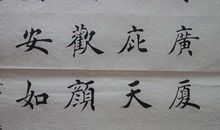 廣厦
庇天
歡顔
安如